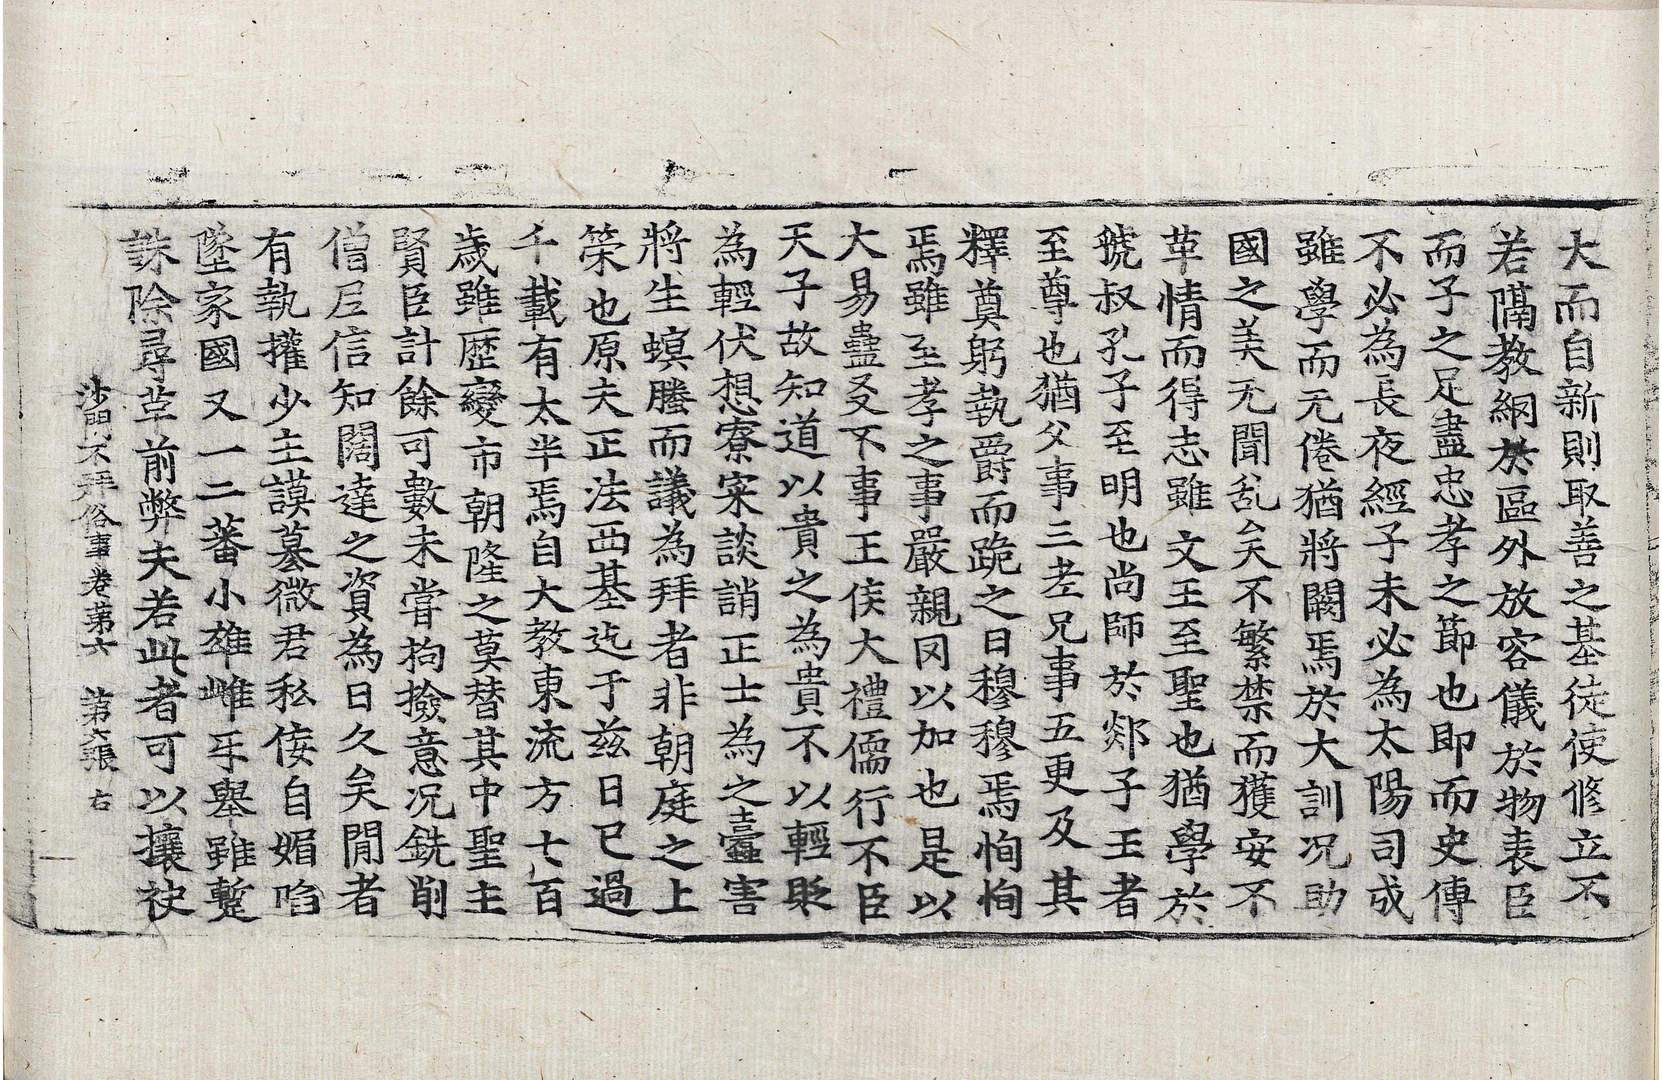 大而自新則取善之基徒使修立不
若隔教網於區外放容儀於物表臣
而子之足盡忠孝之節也即而史傳
不必為長夜經子未必為太陽司成
雖學而无倦猶將闕焉於大訓况助
國之美无聞乱矣不繁禁而獲安不
革情而得志雖文王至聖也猶學於
虢叔孔子至明也尚師於郯子王者
至尊也猶父事三老兄事五更及其
釋奠躬執爵而跪之日穆穆焉恂恂
焉雖至孝之事嚴親罔以加也是以
大易蠱爻不事王侯大禮儒行不臣
天子故知道以貴之為貴不以輕貶
為輕伏想寮寀談誚正士為之蠧害
將生螟螣而議為拜者非朝庭之上
榮也原夫正法西基迄于茲日已過
千載有太半焉自大教東流方七百
歲雖歷變市朝隆之莫替其中聖主
賢臣計餘可數未嘗拘撿意况銑削
僧尼信知闊達之資為日久矣閒者
有執攉少主謨蓦微君私倿自媚㕯
墜家國又一二蕃小雄雌乐舉雖蹔
誅除尋草前弊夫若此者可以攘袂
沙門不拜俗事卷第六　第六張　右